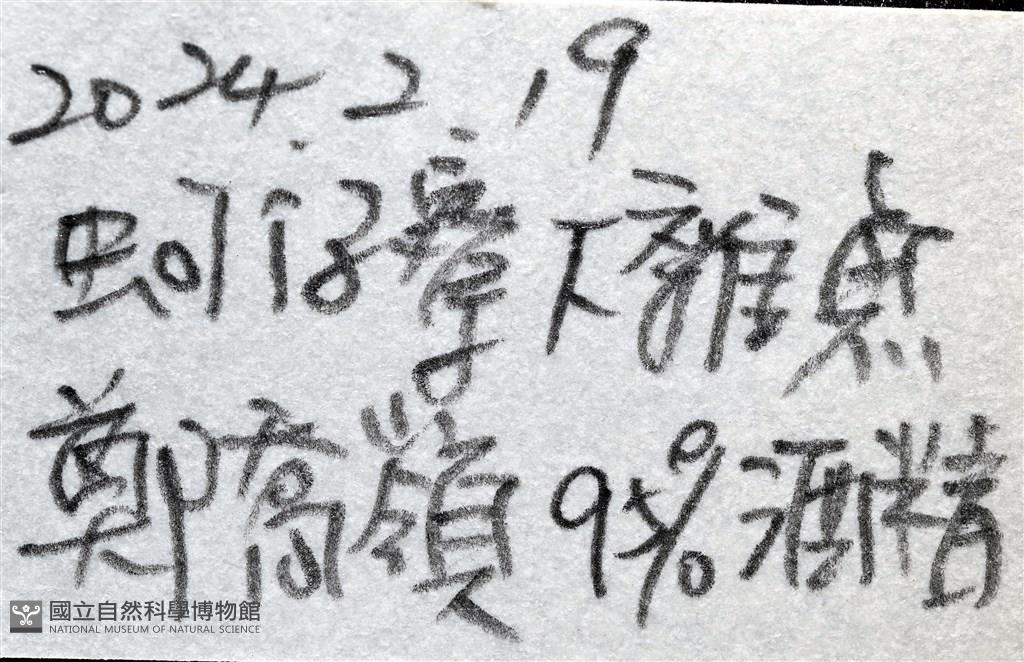 2024.2.19
蚵仔寮下雜魚
鄭高嶺 95%酒精
國立自然科學博物館
NATIONAL MUSEUM OF NATURAL SCIENCE